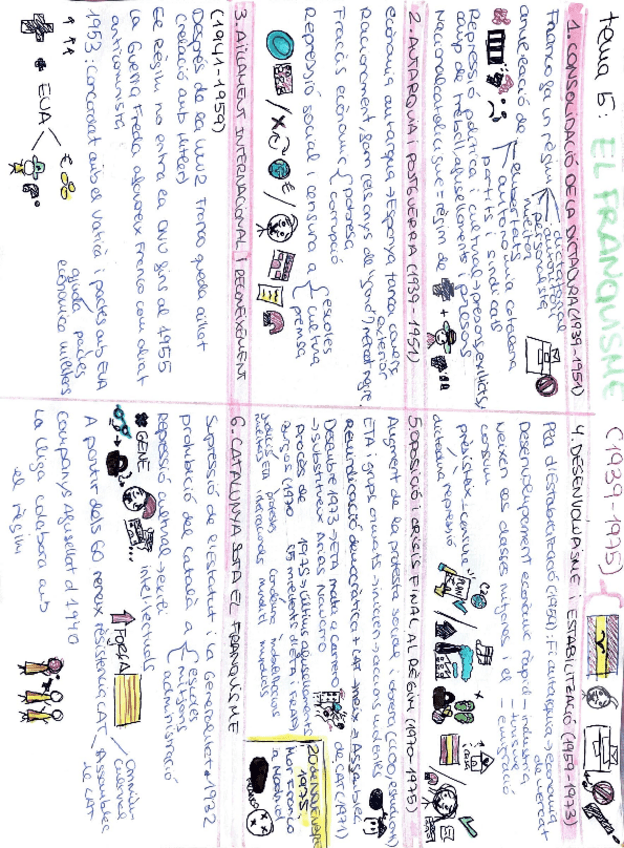 tema 5: EL FRANQUISME (1939-1975)
1. CONSOLIDACIÓ DE LA DICTADURA (1939-1951)
Franco fa un règim
dictatorial
autoritari
personalista
militar
anul·lació de
llibertats
autonomia catalana
partits i sindicats
Repressió política i cultural → presons, exilis,
camp de treball, afusellaments, presons
Nacionalcatolicisme = règim de
+
2. AUTARQUIA I POSTGUERRA (1939-1951)
econòmia autàrquica → Espanya tanca comerç
exterior
Racionament, fam (els anys de "gana") Mercat negre
Fracàs econòmic
pobresa
corrupció
Repressió social i censura a
escoles
cultura
premsa
3. AÏLLAMENT INTERNACIONAL I RECONEIXEMENT
(1941-1959)
Després de la WW2 Franco queda aïllat
(relació amb Hitler)
El Règim no entra ea ONU fins al 1955
La Guerra Freda afavoreix Franco com aliat
anticomunista
1953: Concordat amb el Vaticà i pactes amb EUA
ajuda
econòmica
pactes
militars
EUA
€
4. DESENVOLUPISME I ESTABILITZACIÓ (1959-1973)
Pla d'Estabilització (1959): Fi autarquia → economia
de mercat
Desenvolupament econòmic ràpid
- industria
- turisme
- emigració
Neixen les classes mitjanes i el
consum
dictadura repressió
5. OPOSICIÓ I CRISIS FINAL AL RÈGIM (1970-1975)
Augment de la protesta social i obrera (CCOO, estudiants)
ETA i grups armats → inicien → accions violentes
Reivindicació democràtica + CAT → neix = Assamblea
de CAT (1971)
Desembre 1973 → ETA mata a Carrero
→ substitueix Arias Navarro
Procés de
Burgos (1970
1975 → últims afusellaments
20 de novembre
1975:
Mor Franco
a Madrid
FRANCO
6. CATALUNYA SOTA EL FRANQUISME
Supressió de l'estatut i la Generalitat 1932
prohibició del català a
escoles
mitjans
administració
Repressió cultural → exili
intel·lectuals
GENE
FORÇA
A partir dels 60 reneix resistència CAT
Òmnium
Cultural
Assamblea
de CAT
Companys Afusellat al 1940
La lliga colabora amb
el règim